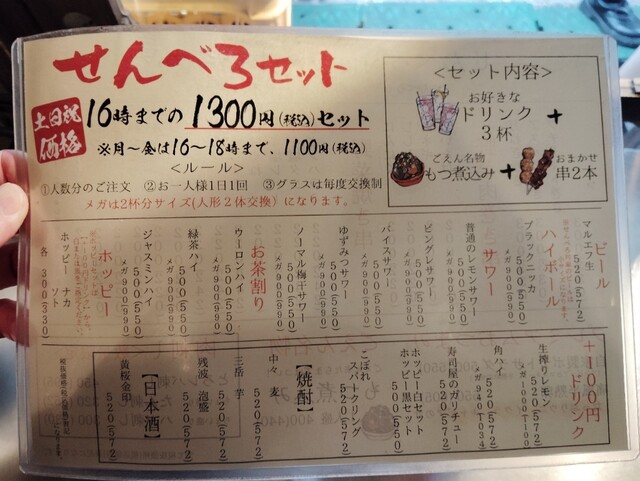 せんべろセット
土日祝
価格
16時までの1300円(税込)セット
※月〜金は16〜18時まで、1100円(税込)
<ルール>
①人数分のご注文 ②お一人様1日1回 ③グラスは毎度交換制
メガは2杯分サイズ(人形2体交換)になります。
<セット内容>
お好きな
ドリンク
3杯
+
ごえん名物
もつ煮込み
+
おまかせ
串2本
ビール
マルエフ生
520(572)
ハイボール
ブラックニッカ
500(550)
メガ900(990)
サワー
普通のレモンサワー
500(550)
メガ900(990)
ピングレサワー
500(550)
メガ900(990)
バイスサワー
500(550)
メガ900(990)
ゆずみつサワー
500(550)
メガ900(990)
ノーマル梅干サワー
500(550)
メガ900(990)
お茶割り
ウーロンハイ
500(550)
メガ900(990)
緑茶ハイ
500(550)
メガ900(990)
ジャスミンハイ
500(550)
メガ900(990)
ホッピー
ホッピー ナカ
ソト
各 300(330)
+100円
ドリンク
生搾りレモン
520(572)
メガ1000(1100)
角ハイ
520(572)
メガ940(1034)
寿司屋のガリチュー
520(572)
ホッピー白セット
ホッピー黒セット
各500(550)
こぼれ
スパークリング
520(572)
【焼酎】
中々 麦
520(572)
三岳 芋
520(572)
残波 泡盛
520(572)
【日本酒】
黄桜金印
520(572)